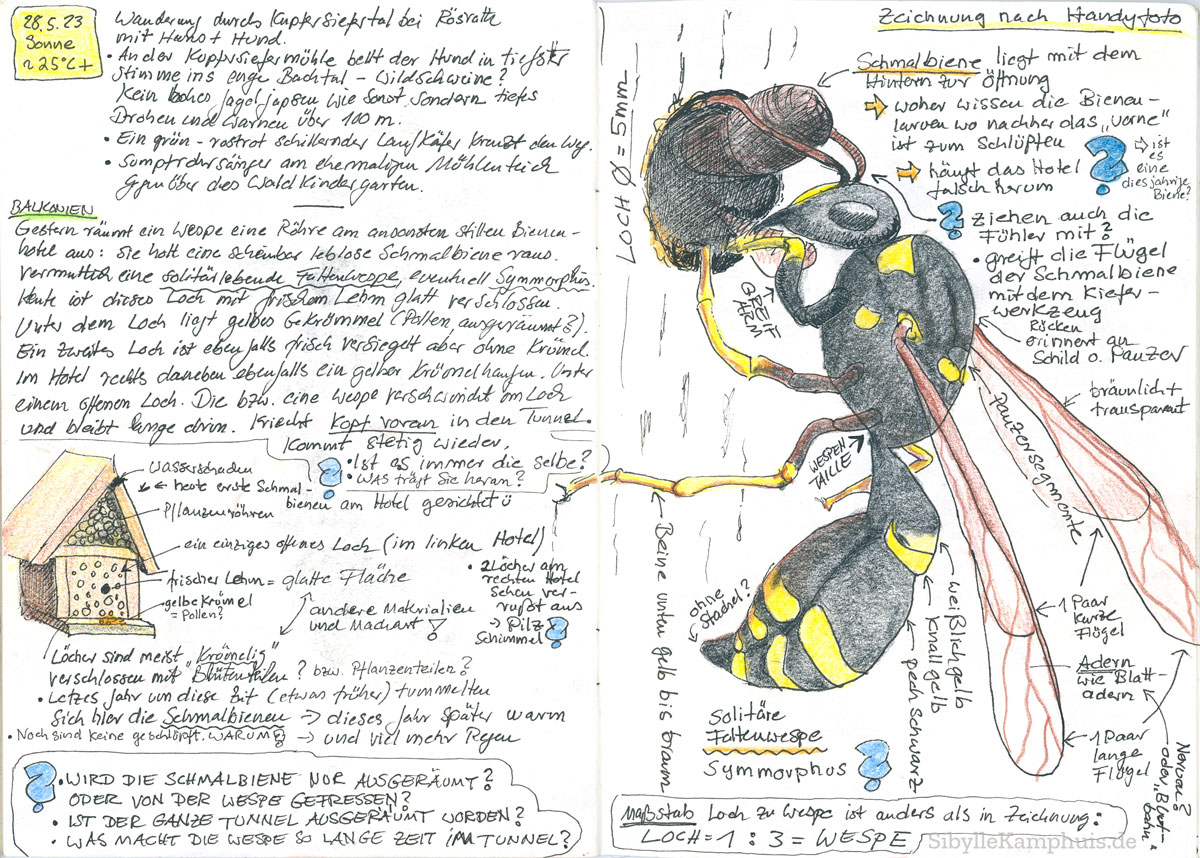 28.5.23
Sonne
~ 25°C +
Wanderung durch Kupfersiefertal bei Rösrath
mit Hans + Hund.
• An der Kupfersiefermühle bellt der Hund in tiefster
Stimme ins enge Bachtal – Wildschweine?
Kein hohes Jagdjapsen wie sonst, sondern tiefes
Drohen und Warnen über 100 m.
• Ein grün-rostrot schillernder Laufkäfer kreuzt den Weg.
• Sumpfrohrsänger am ehemaligen Mühlenteich
gegenüber des Waldkindergarten.
BALKONIEN
Gestern räumt ein Wespe eine Röhre am ansonsten stillen Bienen-
hotel aus: sie holt eine scheinbar leblose Schmalbiene raus.
Vermutlich eine solitärlebende Faltenwespe, eventuell Symmorphus.
Heute ist dieses Loch mit frischem Lehm glatt verschlossen.
Unter dem Loch liegt gelbes Gekrömmel (Pollen, ausgeräumt?).
Ein zweites Loch ist ebenfalls frisch versiegelt aber ohne Krümel.
Im Hotel rechts daneben ebenfalls ein gelber Krümelhaufen. Unter
einem offenen Loch. Die bzw. eine Wespe verschwindet im Loch
und bleibt lange drin. Kriecht Kopf voran in den Tunnel.
Kommt stetig wieder.
? • Ist es immer die selbe?
• Was trägt Sie heran?
Wasserschaden
← heute erste Schmal-
bienen am Hotel gesichtet ü
Pflanzenröhren
ein einziges offenes Loch (im linken Hotel)
frischer Lehm = glatte Fläche
gelbe Krümel
= Pollen?
andere Materialien
und Machart !
• 2 Löcher am
rechten Hotel
sehen ver-
rußt aus
→ Pilz
Schimmel ?
Löcher sind meist "Krümelig"
verschlossen mit Blütenteilen? bzw. Pflanzenteilen?
• Letzes Jahr um diese Zeit (etwas früher) tummelten
sich hier die Schmalbienen → dieses Jahr später warm
• Noch sind keine geschlüpft. WARUM? → und viel mehr Regen
? • WIRD DIE SCHMALBIENE NUR AUSGERÄUMT?
ODER VON DER WESPE GEFRESSEN?
• IST DER GANZE TUNNEL AUSGERÄUMT WORDEN?
• WAS MACHT DIE WESPE SO LANGE ZEIT IM TUNNEL?
Zeichnung nach Handyfoto
LOCH Ø = 5mm
Schmalbiene liegt mit dem
Hintern zur Öffnung
⇨ woher wissen die Bienen-
larven wo nachher das „vorne“
ist zum Schlüpfen
? ⇨ ist
es
eine
diesjährige
Biene?
⇨ hängt das Hotel
falsch herum
? ziehen auch die
Fühler mit?
• greift die Flügel
der Schmalbiene
mit dem Kiefer-
werkzeug
Rücken
erinnert an
Schild o. Panzer
GREIF
ARM
bräunlich
transparent
Panzersegmente
WESPEN
TAILLE
Beine unten gelb bis braun
ohne
Stachel?
weißlichgelb
knallgelb
pechschwarz
1 Paar
kurze
Flügel
Adern
wie Blatt-
adern
1 Paar
lange
Flügel
Nerven?
oder „Blut-
bahn“
Solitäre
Faltenwespe
Symmorphus ?
Maßstab Loch zu Wespe ist anders als in Zeichnung:
LOCH = 1 : 3 = WESPE
SibylleKamphuis.de